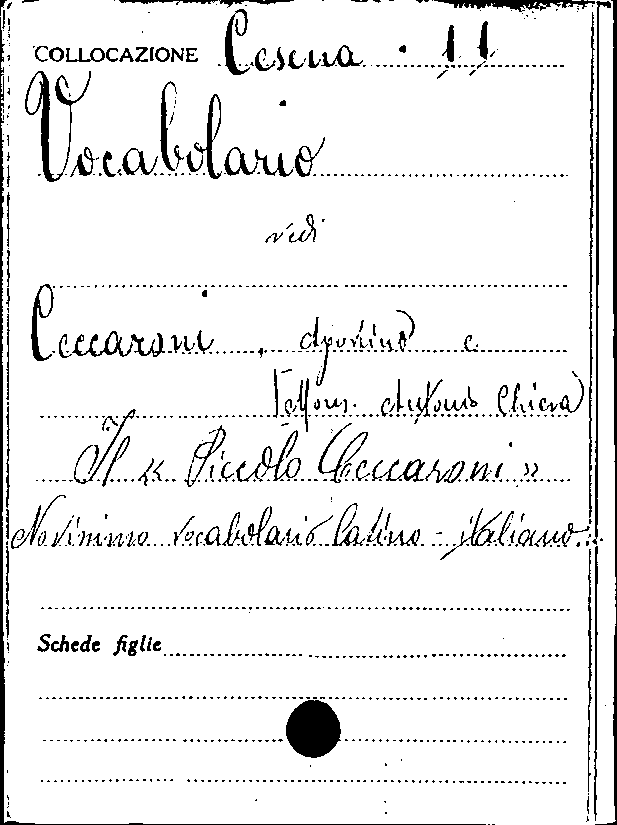 COLLOCAZIONE Cesena . 11
Vocabolario
vedi
Ceccaroni, Agostino e
Mons. Antonio Chiesa
Il « Piccolo Ceccaroni »
Novissimo vocabolario latino - italiano.
Schede figlie